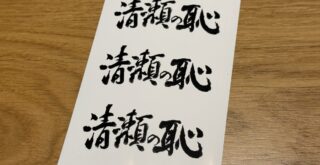 清瀬の恥
清瀬の恥
清瀬の恥